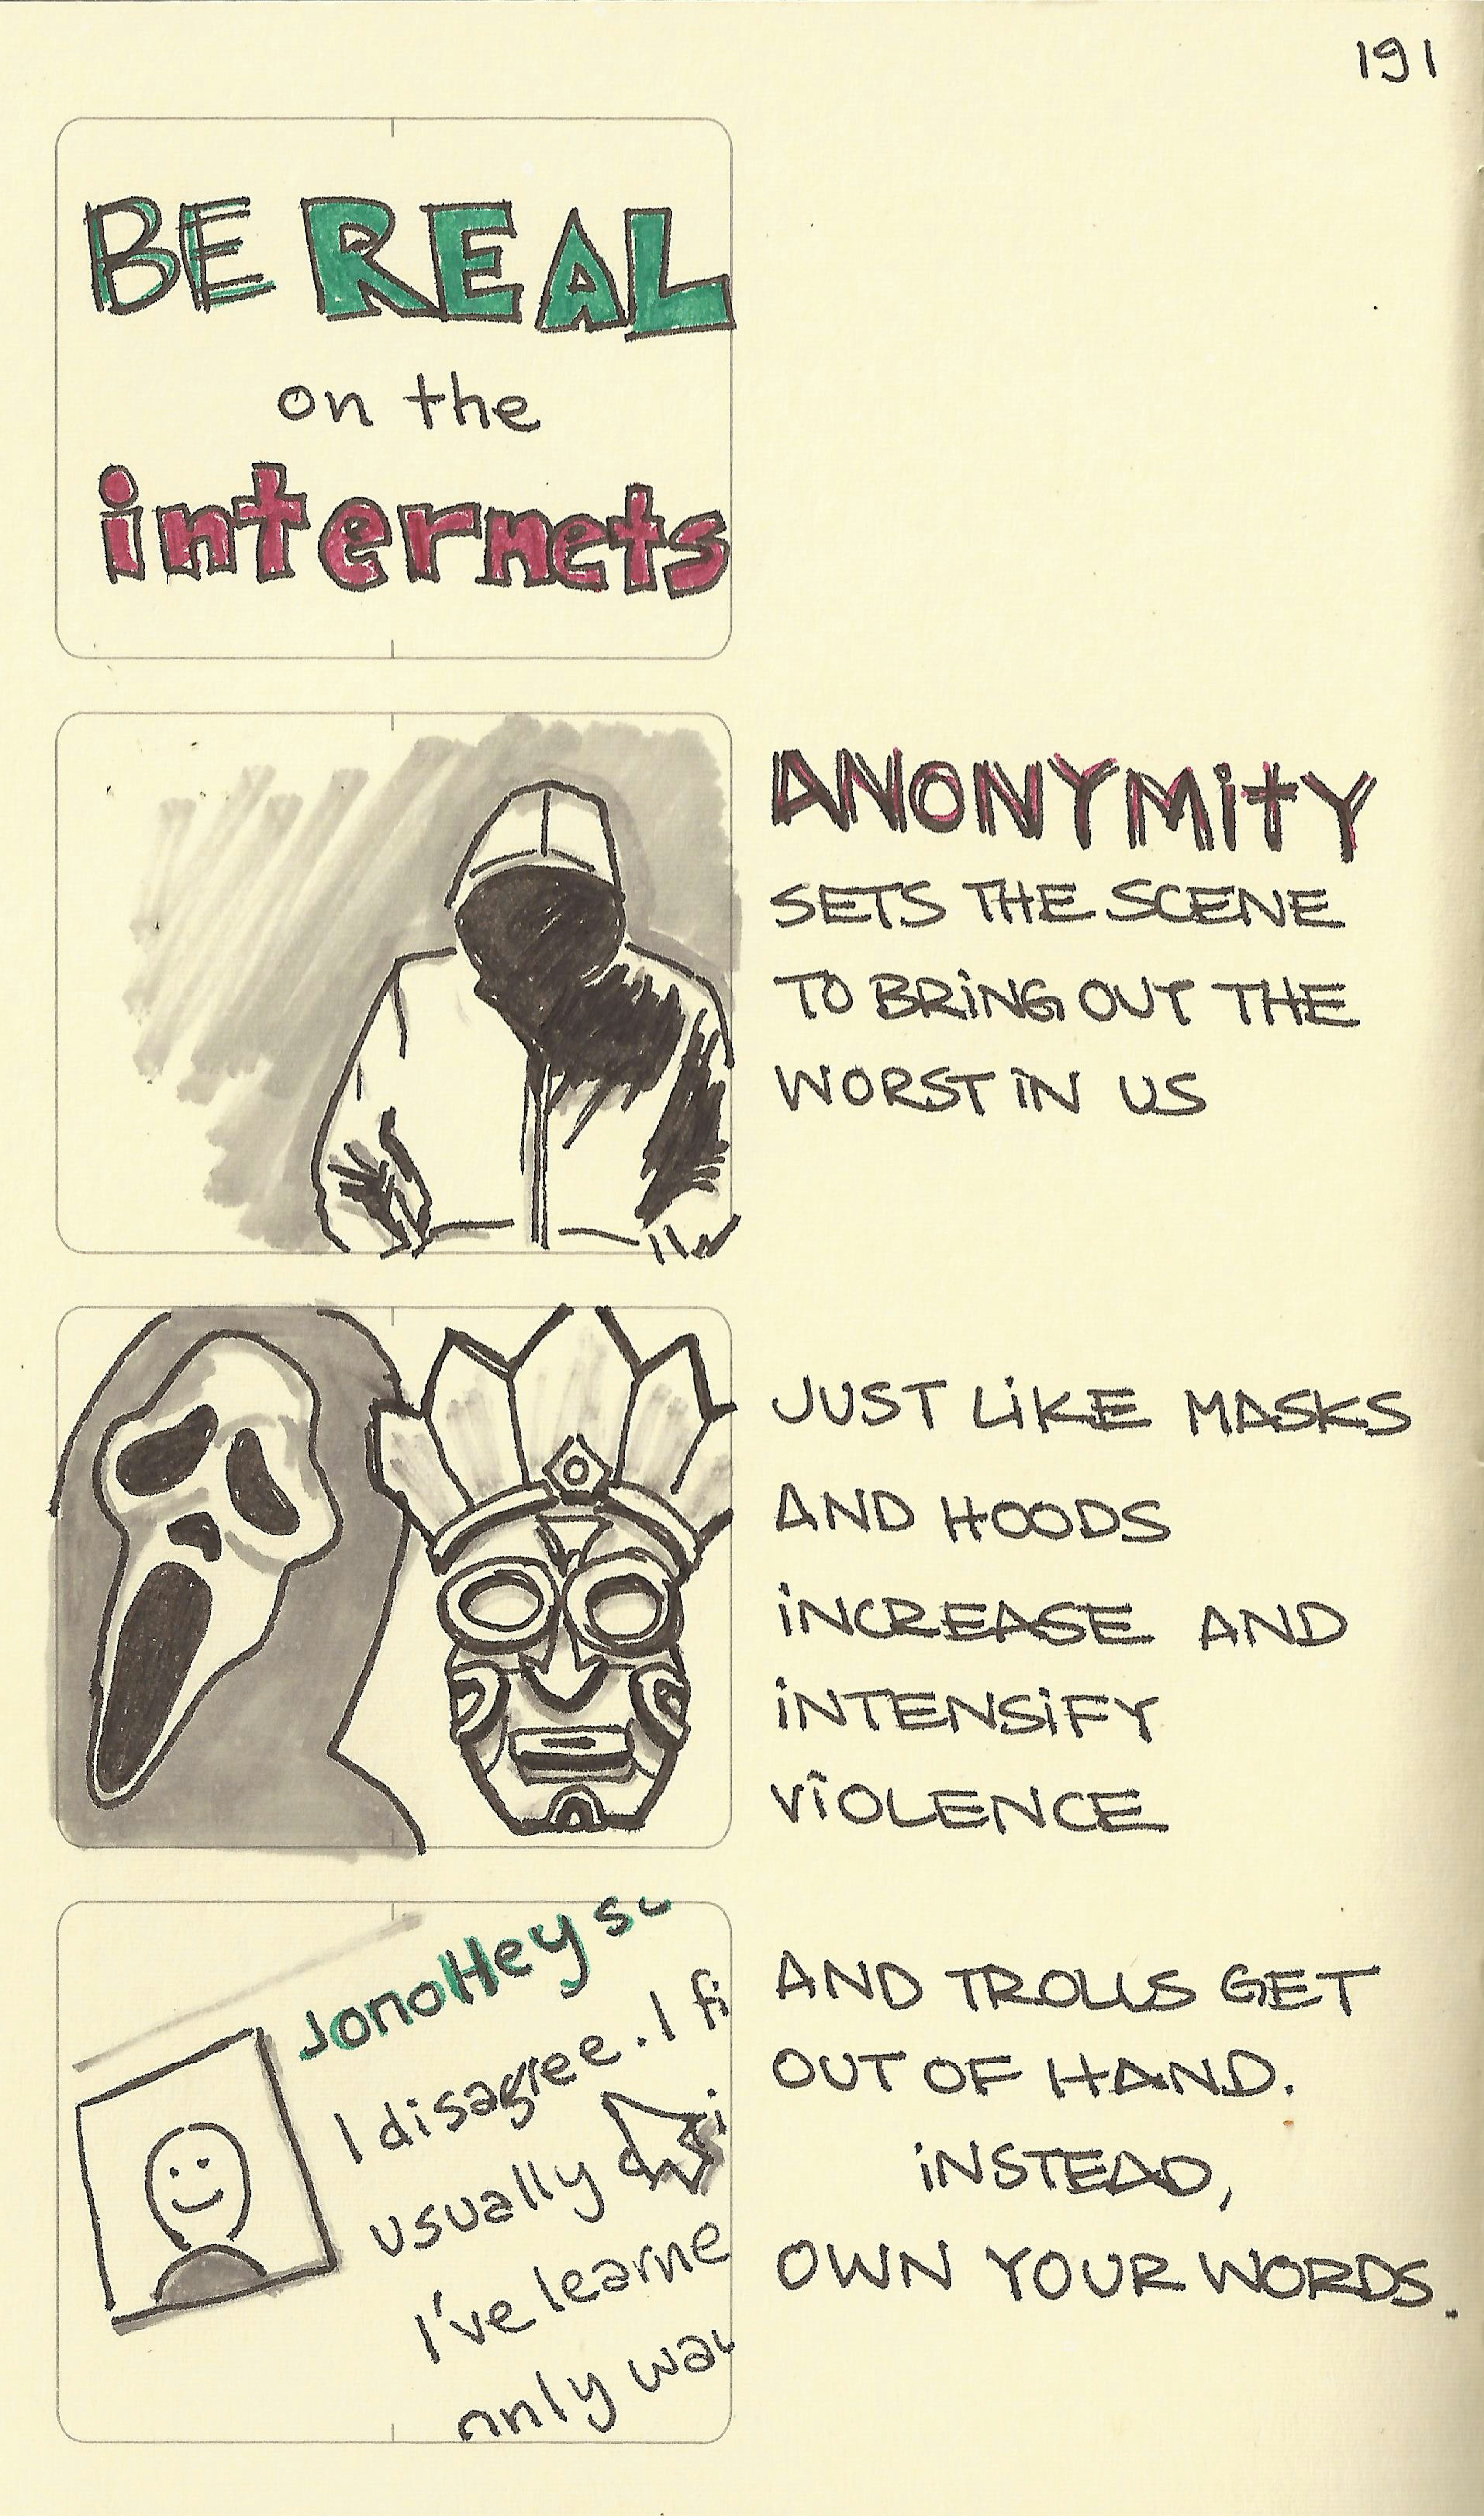 191
BE REAL
on the
internets
ANONYMiTY
SETS THE SCENE
TO BRiNG OUT THE
WORST iN US
JUST LiKE MASKS
AND HOODS
iNCREASE AND
iNTENSiFY
ViOLENCE
JonoHey
I disagree. I
usually
I've learne
only
AND TROLLS GET
OUT OF HAND.
iNSTEAD,
OWN YOUR WORDS.